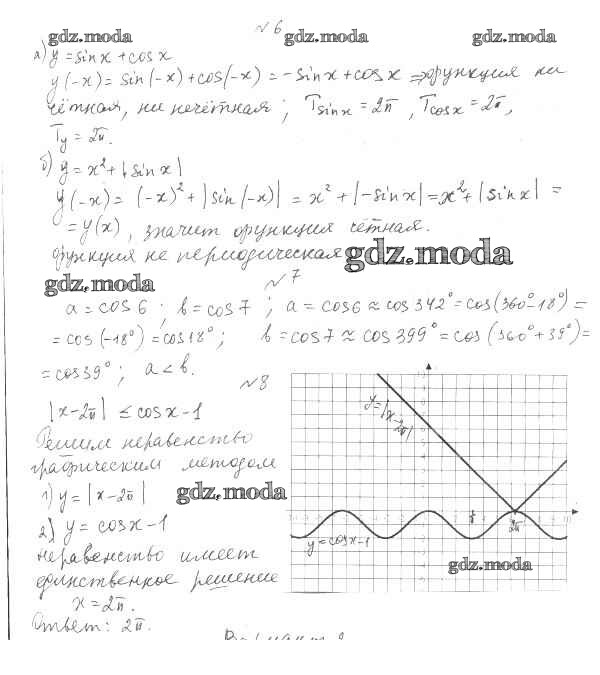 №6
gdz.moda gdz.moda gdz.moda
а) y = sinx + cosx
y(-x) = sin(-x) + cos(-x) = -sinx + cosx ⇒ функция ни
чётная, ни нечётная; T sinx = 2π, T cosx = 2π,
Ty = 2π.
б) y = x² + |sinx|
y(-x) = (-x)² + |sin(-x)| = x² + |-sinx| = x² + |sinx| =
= y(x), значит функция чётная.
функция не периодическая gdz.moda
gdz.moda №7
a = cos6; b = cos7; a = cos6 ≈ cos342° = cos(360°-18°) =
= cos(-18°) = cos18°; b = cos7 ≈ cos399° = cos(360°+39°) =
= cos39°; a < b.
№8
|x-2π| ≤ cosx-1
Решим неравенство
графическим методом
1) y = |x-2π| gdz.moda
2) y = cosx-1
неравенство имеет
единственное решение
x = 2π.
Ответ: 2π.
y=|x-2π|
2π
y=cosx-1
gdz.moda